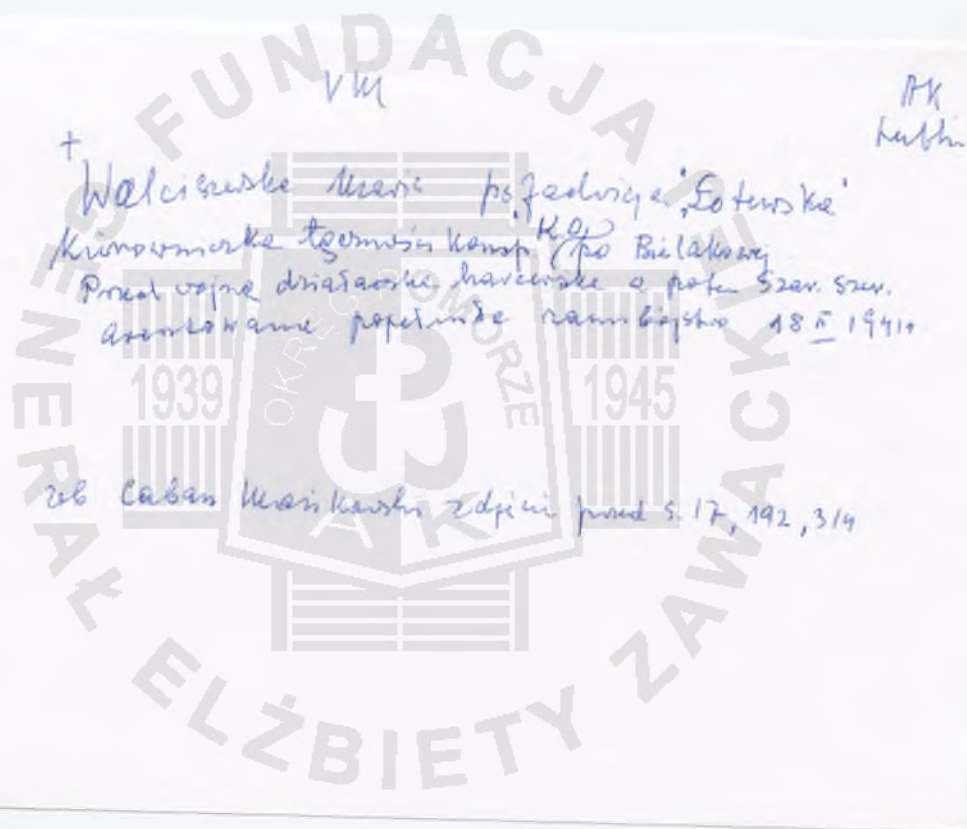 VM
AK
Lublin
+
Walciszewska Maria ps. Jadwiga "Łotewska"
Kierowniczka łączności konsp. K.O. po Bielakowej
Przed wojną działaczka harcerska a potem Szar. Szer.
aresztowana popełniła samobójstwo 18 II 1941r
zob Caban Mańkowski zdjęcie przed s. 17, 192, 314
FUNDACJA GENERAŁ ELŻBIETY ZAWACKIEJ
OKRĘG POMORZE
1939
1945
AK